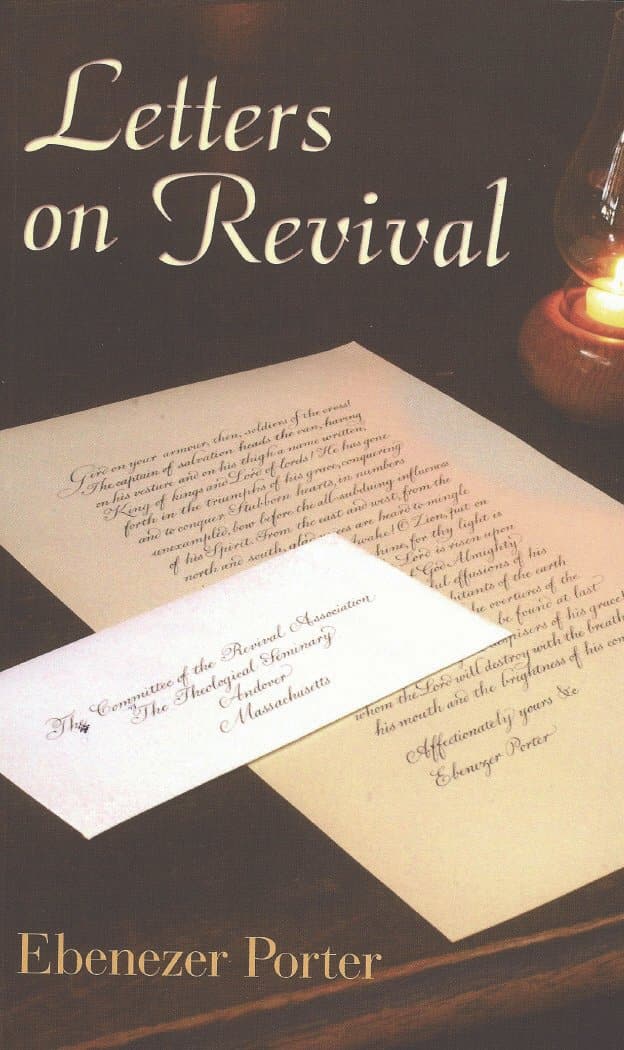 Letters
on Revival
Gird on your armour, then, soldiers of the cross!
The captain of salvation heads the van, having
on his vesture and on his thigh a name written,
King of kings and Lord of lords! He has gone
forth in the triumphs of his grace, conquering
and to conquer. Stubborn hearts, in numbers
unexampled, bow before the all-subduing influence
of his Spirit. From the east and west, from the
north and south, glad are heard to mingle
Awake! O Zion, put on
hine, for thy light is
Lord is risen upon
God Almighty
ful effusions of his
bitants of the earth
he overtures of the
be found at last
pisers of his grace
whom the Lord will destroy with the breath
his mouth and the brightness of his com
Affectionately yours &c
Ebenezer Porter
The Committee of the Revival Association
The Theological Seminary
Andover
Massachusetts
Ebenezer Porter